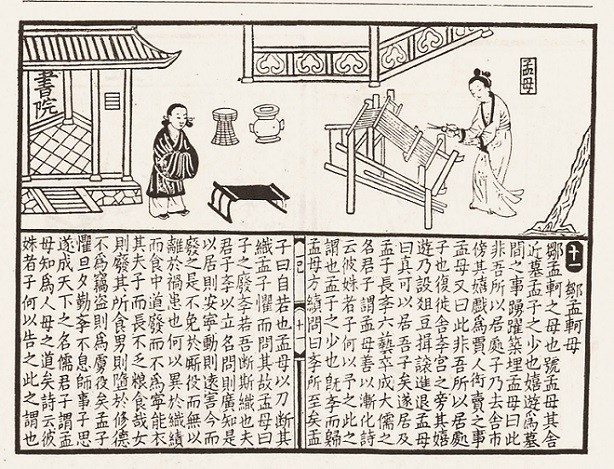 孟母
書院
十一 鄒孟軻母
鄒孟軻之母也號孟母其舍
近墓孟子之少也嬉遊爲墓
間之事踴躍築埋孟母曰此
非吾所以居處子乃去舍市
傍其嬉戲爲賈人衒賣之事
孟母又曰此非吾所以居處
子也復徙舍斈宮之旁其嬉
遊乃設俎豆揖讓進退孟母
曰真可以居吾子矣遂居及
孟子長斈六藝卒成大儒之
名君子謂孟母善以漸化詩
云彼姝者子何以予之此之
謂也孟子之少也既斈而歸
孟母方績問曰斈所至矣孟
十一
子曰自若也孟母以刀斷其
織孟子懼而問其故孟母曰
子之廢斈若吾斷斯織也夫
君子斈以立名問則廣知是
以居則安寧動則遠害今而
廢之是不免於厮役而無以
離於禍患也何以異於織績
而食中道廢而不爲寧能衣
其夫子而長不乏糧食哉女
則廢其所食男則墮於修德
不爲竊盜則爲虜役矣孟子
懼旦夕勤斈不息師事子思
遂成天下之名儒君子謂孟
母知爲人母之道矣詩云彼
姝者子何以告之此之謂也